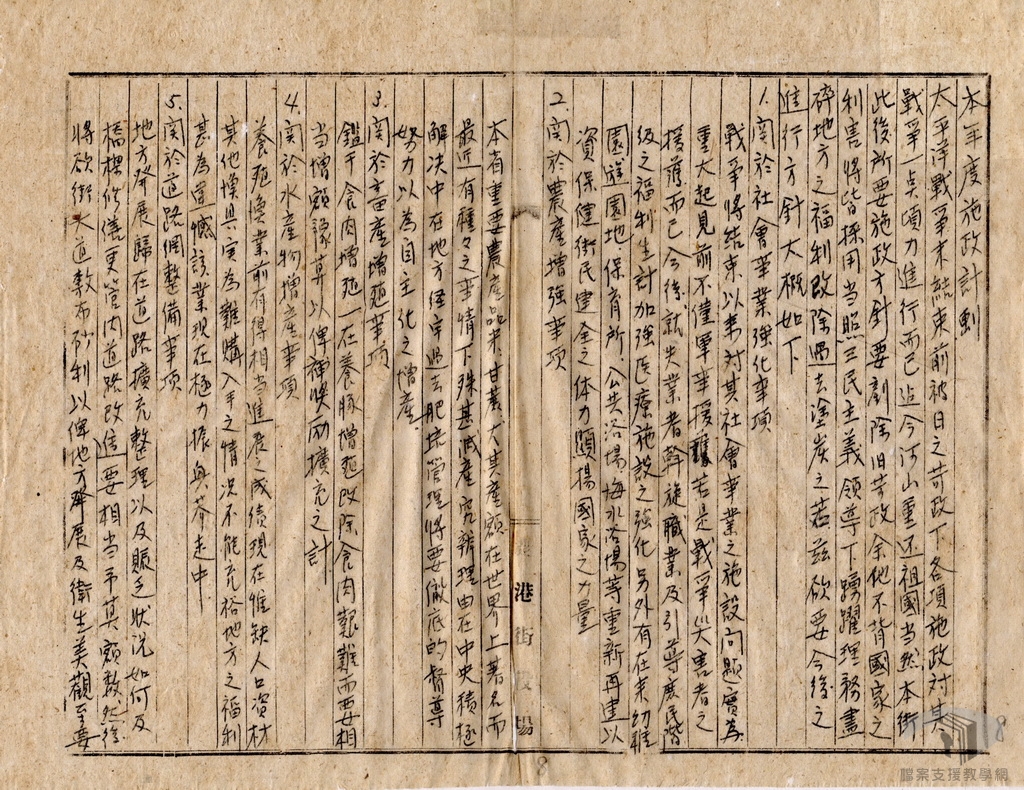 本年度施政計劃
太平洋戰爭未結束前被日之苛政下各項施政対其
戰爭一点傾力進行而已迨今河山重还祖國当然本街
此後所要施政方針要剷除旧苛政余他不背國家之
利害將皆採用当照三民主義領導下踴躍理務盡
碎地方之福利改除過去塗炭之若茲欲要今後之
進行方針大概如下
1. 関於社會事業強化事項
戰爭將結束以來対其社會事業之施設问題實為
重大起見前不僅軍事援護若是戰爭災害者之
援護而已今後就失業者斡旋職業及引導庶民階
級之福利生計加強医療施設之強化另外有在來幼稚
園遊園地保育所、公共浴場海水浴場等重新再建以
資保健街民健全之体力顕揚國家之力量
2. 関於農產增強事項
本省重要農產品米、甘蔗尤其產額在世界上著名而
最近有種々之事情下殊甚減產究辦理由在中央積極
解决中在地方経字過去肥培管理將要徹底的督導
努力以為自主化之增產
3. 関於畜產增殖事項
鑑于食肉增殖一在養豚增殖改除食肉艱難而要相
当增額豫算以俾獎励擴充之計
4. 関於水產物增產事項
養殖漁業前有得相当進展之成績現在惟缺人口資材
其他漁具實為難購入手之情况不能充裕地方之福利
甚為遺憾該業現在極力振興奔走中
5. 関於道路網整備事項
地方発展歸在道路擴充整理以及賑乏狀况如何及
橋樑修繕更管内道路改修要相当予其額数然後
將欲街大道敷布砂利以俾地方発展及衛生美觀至要
港街役場
8
8
檔案支援教學網